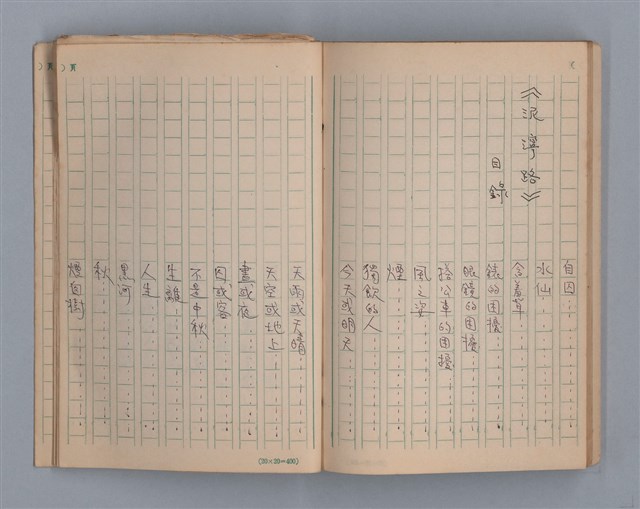 《泥濘路》
目錄
自囚
水仙
含羞草
鏡的困擾
眼鏡的困擾
搭公車的困擾
風之姿
煙
獨飲的人
今天或明天
天雨或天晴
天空或地上
晝或夜
囚或容
不是中秋
生離
人生
黑河
秋
煙自樹
(20×20=400)
頁
頁